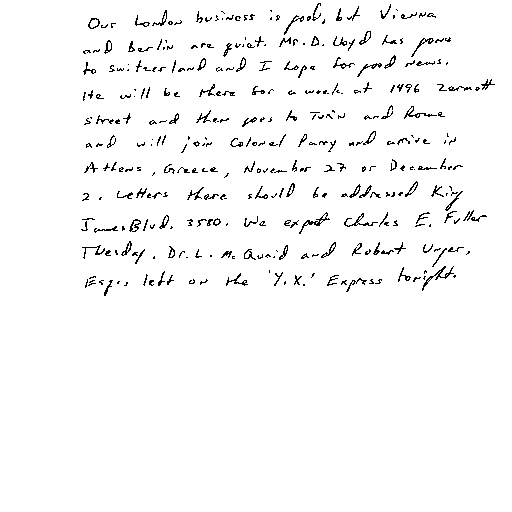 Our London business is good, but Vienna
and Berlin are quiet. Mr. D. Lloyd has gone
to Switzerland and I hope for good news.
He will be there for a week at 1496 Zermott
street and then goes to Turin and Rome
and will join Colonel Parry and arrive in
Athens, Greece, November 27 or December
2. Letters there should be addressed King
James Blvd. 3580. We expect Charles E. Fuller
Tuesday. Dr. L. McQuaid and Robert Unger,
Esq., left on the 'Y.X.' Express tonight.